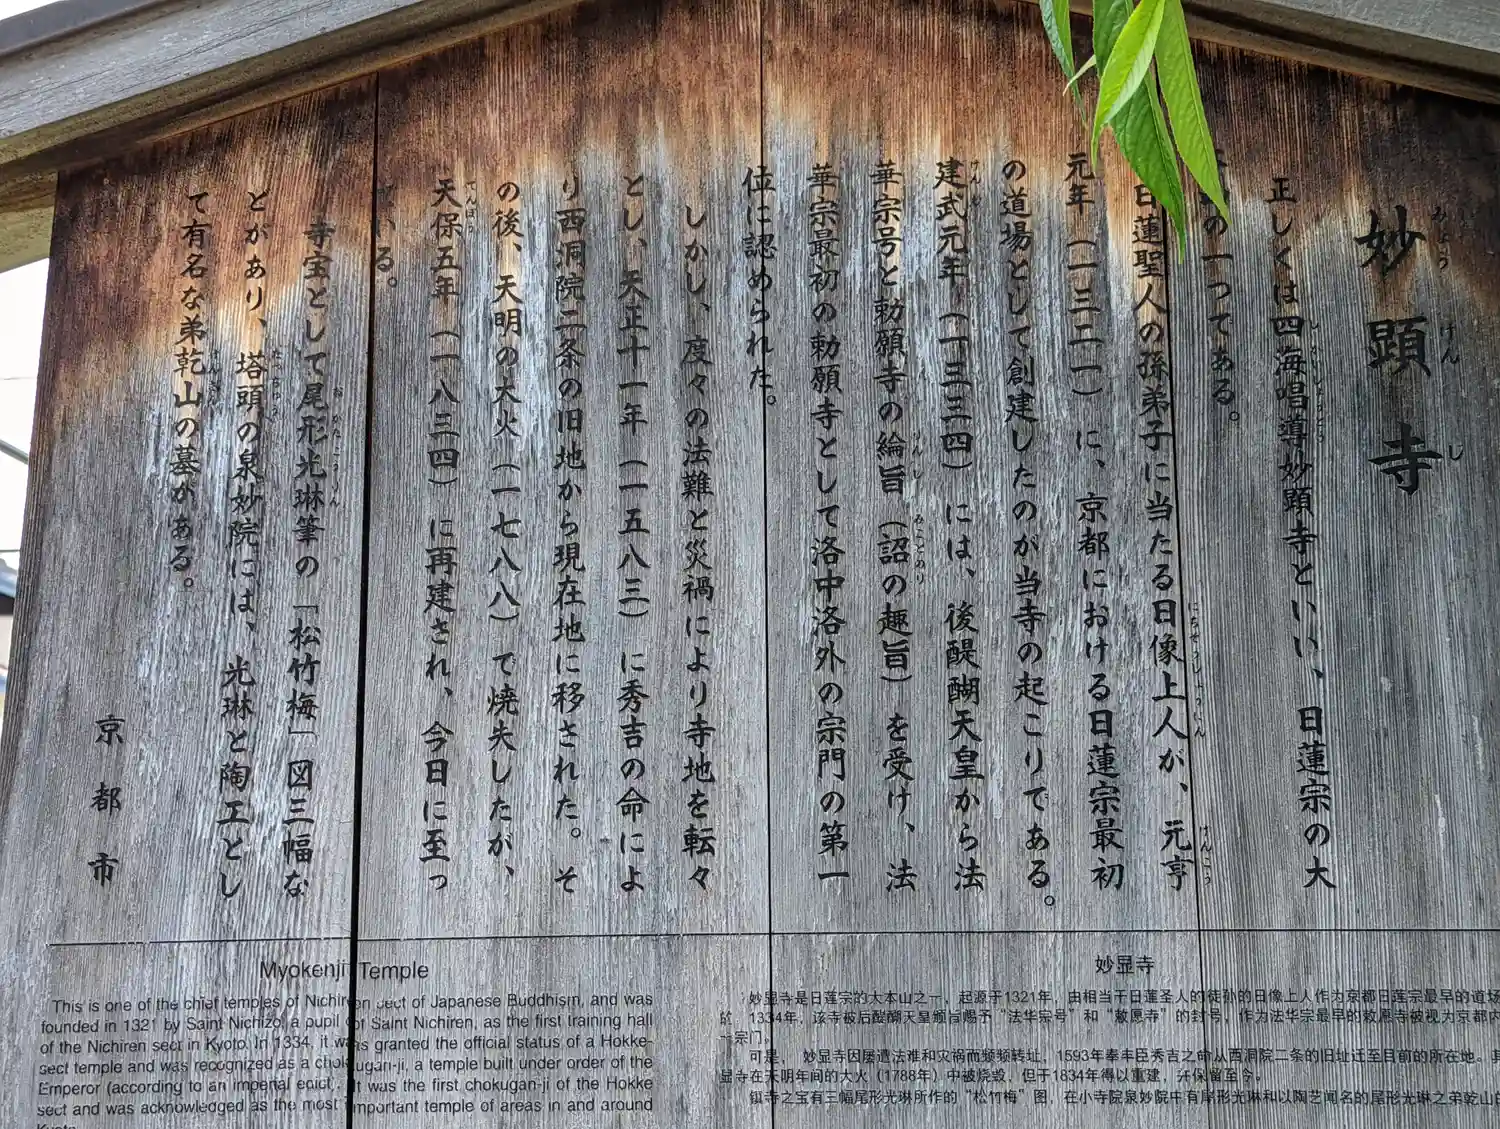 妙顕寺
正しくは四海唱導妙顕寺といい、日蓮宗の大
の一つである。
日蓮聖人の孫弟子に当たる日像上人が、元亨
元年（一三二一）に、京都における日蓮宗最初
の道場として創建したのが当寺の起こりである。
建武元年（一三三四）には、後醍醐天皇から法
華宗号と勅願寺の綸旨（詔の趣旨）を受け、法
華宗最初の勅願寺として洛中洛外の宗門の第一
位に認められた。
しかし、度々の法難と災禍により寺地を転々
とし、天正十一年（一五八三）に秀吉の命によ
り西洞院二条の旧地から現在地に移された。そ
の後、天明の大火（一七八八）で焼失したが、
天保五年（一八三四）に再建され、今日に至っ
いる。
寺宝として尾形光琳筆の「松竹梅」図三幅な
どがあり、塔頭の泉妙院には、光琳と陶工とし
て有名な弟乾山の墓がある。
京都市
Myokenji Temple
This is one of the chief temples of Nichiren sect of Japanese Buddhism, and was
founded in 1321 by Saint Nichizo, a pupil of Saint Nichiren, as the first training hall
of the Nichiren sect in Kyoto. In 1334, it was granted the official status of a Hokke-
sect temple and was recognized as a chokugan-ji, a temple built under order of the
Emperor (according to an imperial edict). It was the first chokugan-ji of the Hokke
sect and was acknowledged as the most important temple of areas in and around
妙显寺
妙显寺是日莲宗的大本山之一，起源于1321年，由相当于日莲圣人的徒孙的日像上人作为京都日莲宗最早的道场
的。1334年，该寺被后醍醐天皇颁旨赐予“法华宗号”和“敕愿寺”的封号，作为法华宗最早的敕愿寺被视为京都内
一宗门。
可是，妙显寺因屡遭法难和灾祸而频频转址，1593年奉丰臣秀吉之命从西洞院二条的旧址迁至目前的所在地。其
显寺在天明年间的大火（1788年）中被烧毁，但于1834年得以重建，并保留至今。
镇寺之宝有三幅尾形光琳所作的“松竹梅”图，在小寺院泉妙院中有尾形光琳和以陶艺闻名的尾形光琳之弟乾山的